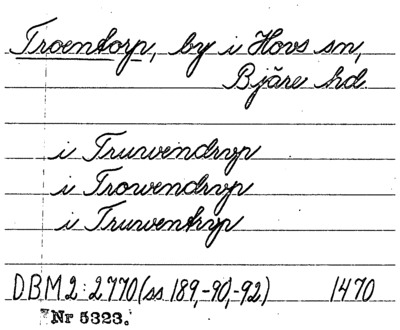 Troentorp, by i Hovs sn,
Bjäre hd
i Truwendryp
i Trowendryp
i Truwentryp
DBM 2:2770 (ss 189,-90,-92) 1470
Nr 5323.